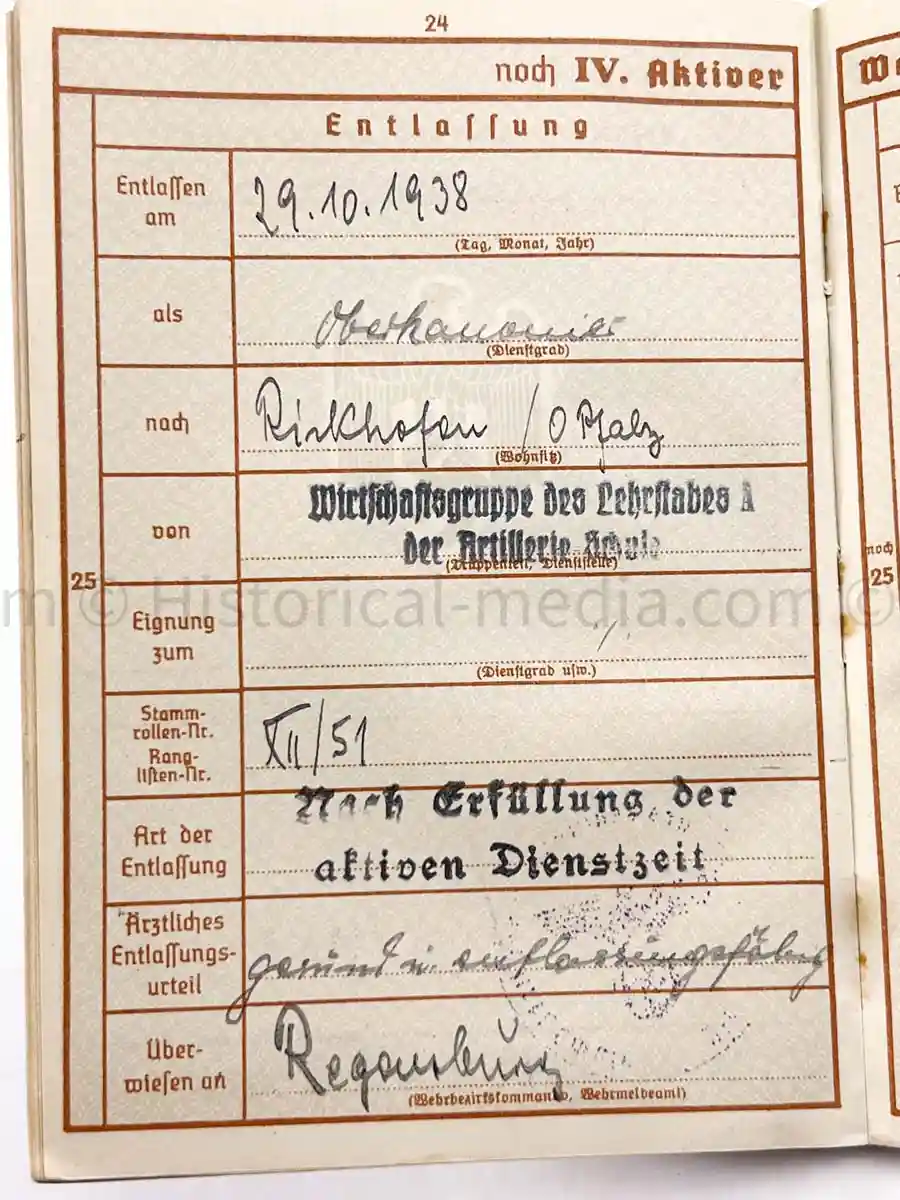 24
noch IV. Aktiver
Entlassung
Entlassen
am
29.10.1938
(Tag, Monat, Jahr)
als
Oberkanonier
(Dienstgrad)
nach
Rickhofen / O Pfalz
(Wohnsitz)
von
Wirtschaftsgruppe des Lehrstabes A
der Artillerie Schule
(Truppenteil, Dienststelle)
25
Eignung
zum
(Dienstgrad usw.)
Stamm-
rollen-Nr.
Rang-
listen-Nr.
XII/51
Art der
Entlassung
Nach Erfüllung der
aktiven Dienstzeit
Ärztliches
Entlassungs-
urteil
gesund u. entlassungsfähig
Über-
wiesen an
Regensburg
(Wehrbezirkskommando, Wehrmeldeamt)
noch
25
m © Historical-media.com ©